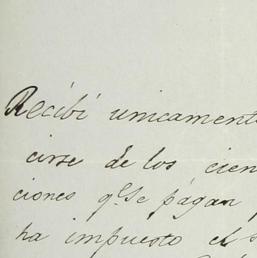 Recibi unicament
cirse de los cien
ciones qe. Se pagan
ha impuesto el s